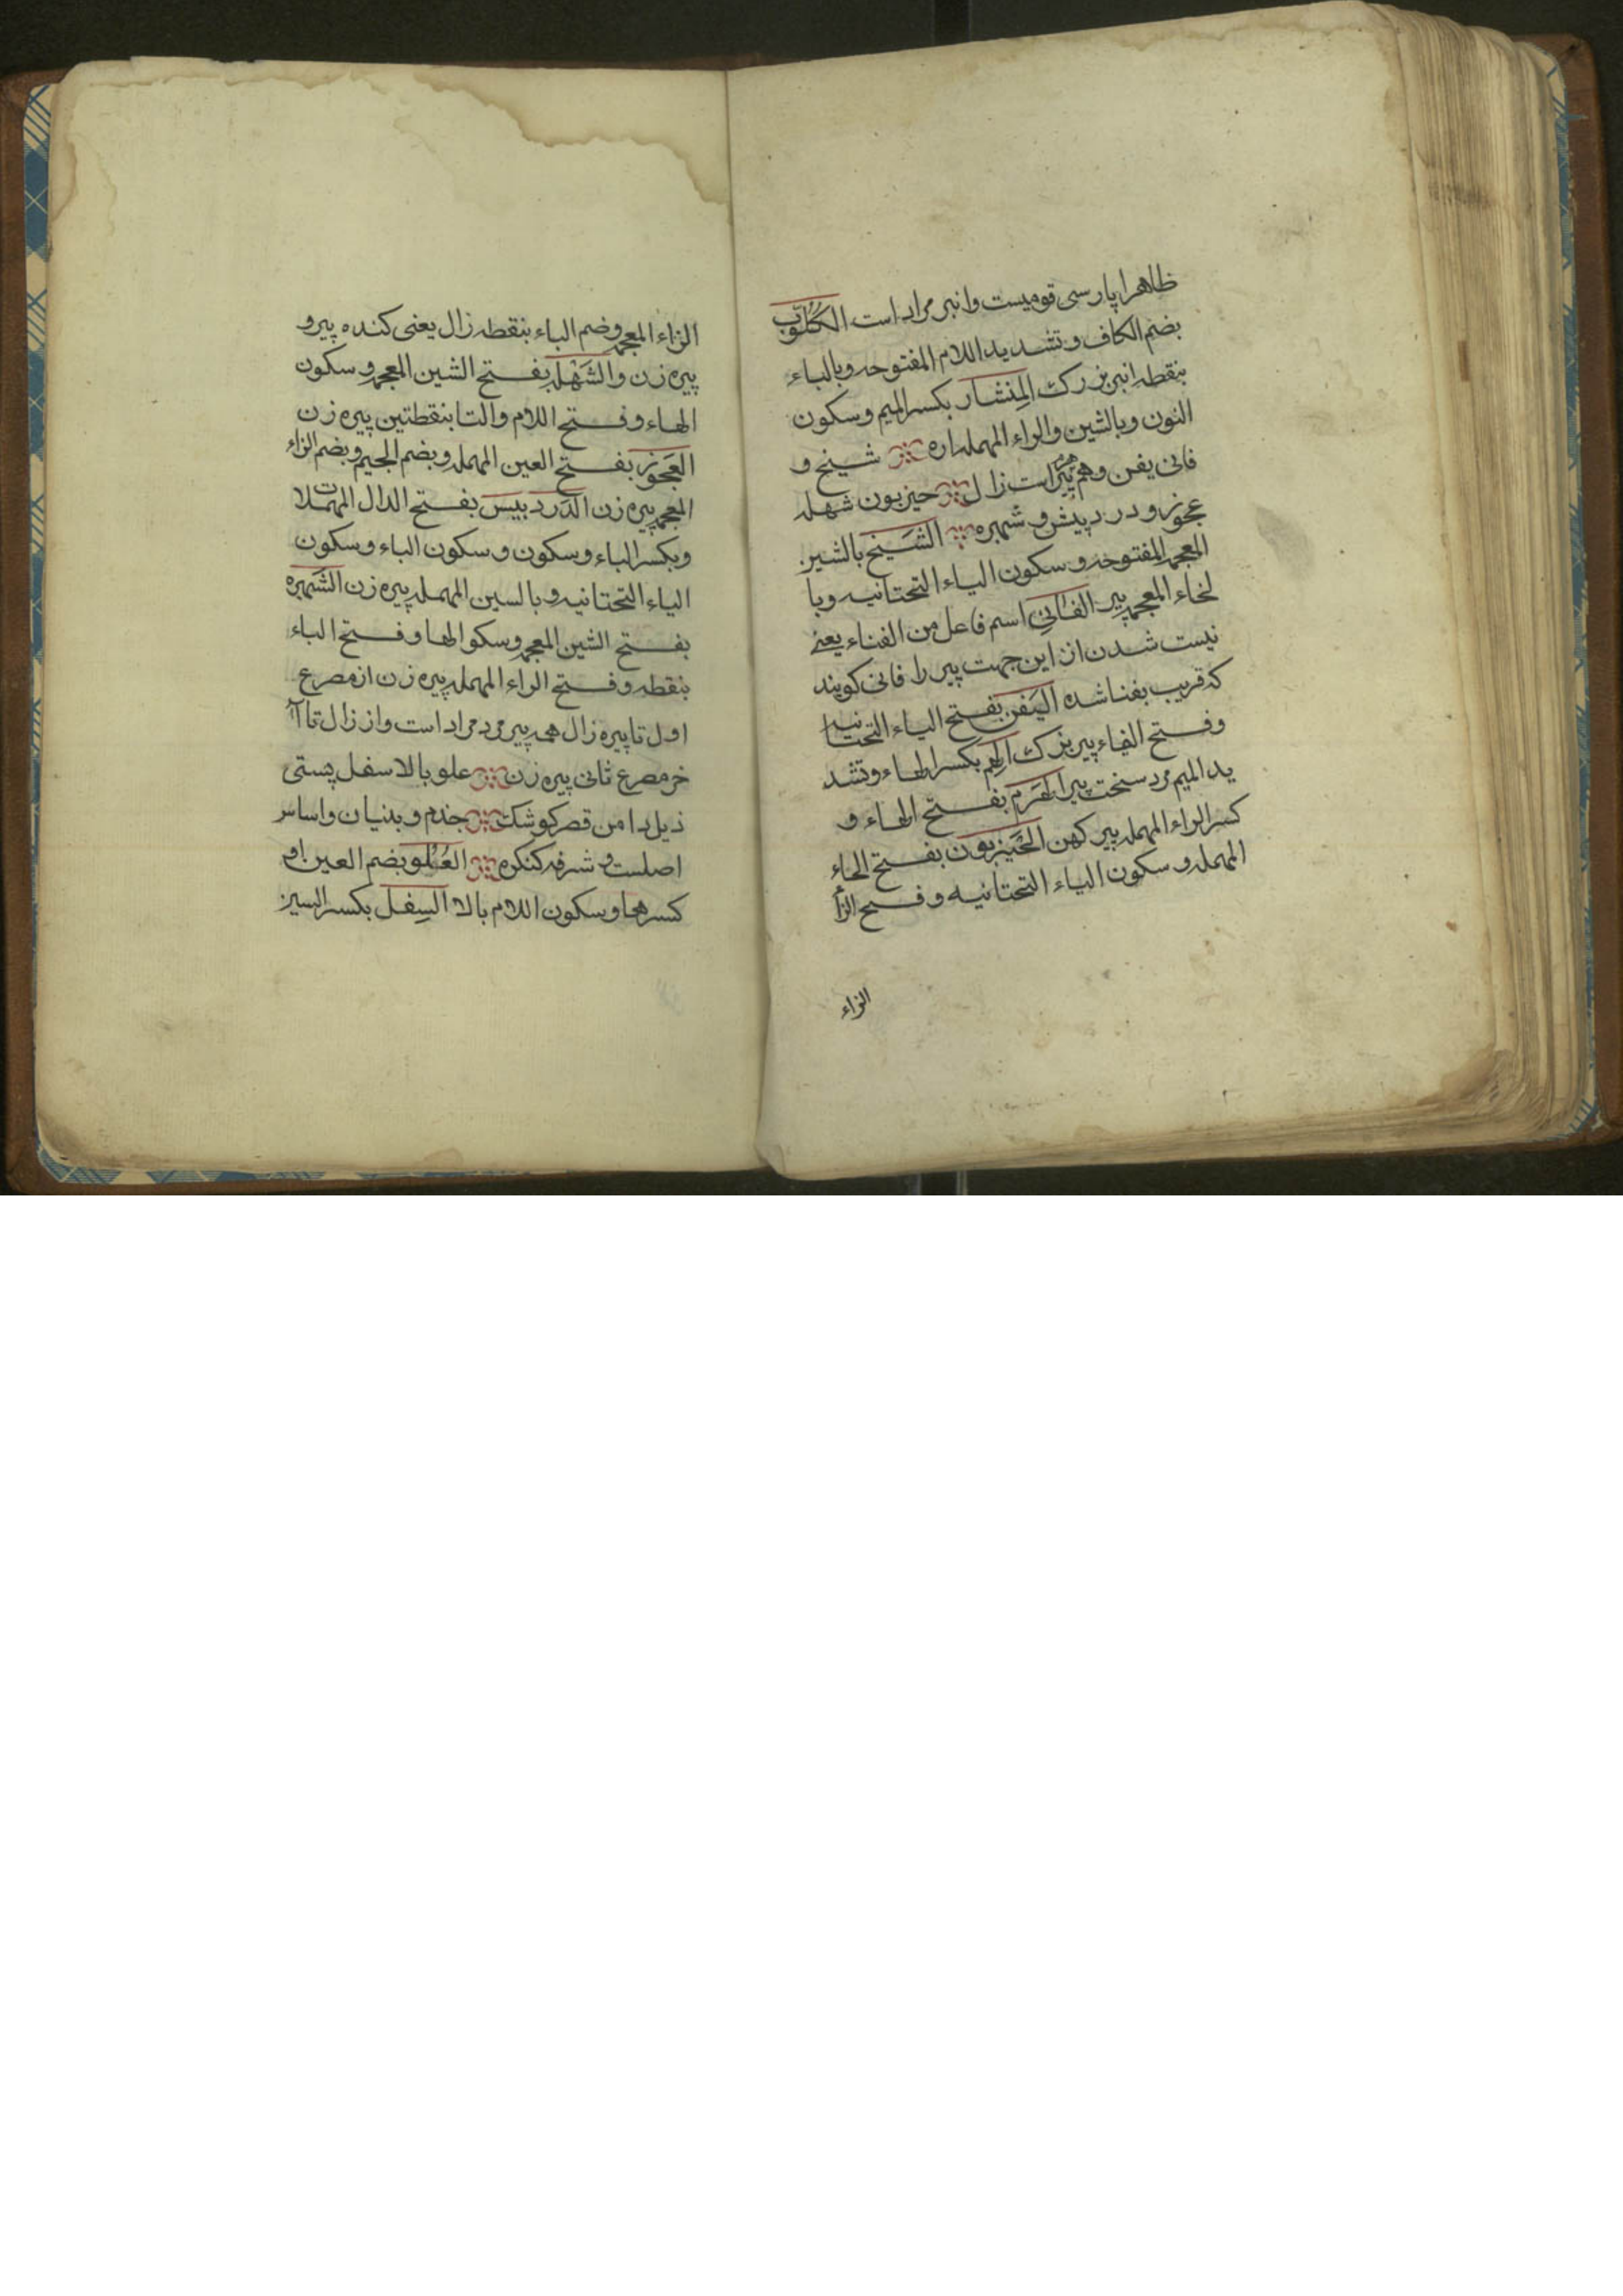 ظاهرا پارسی قومیست وانبر مراد است الکُلُوّب
بضم الکاف و تشدید اللام المفتوحه و بالباء
بنقطه انبر بزرک المِنشار بکسر المیم و سکون
النون و بالشین والراء المهمله اره شیخ و
فانی یفن و هم هرم پیر است زال حیزبون شهله
عجوز و دردبیش و شهبره الشَیخ بالشین
المعجمه المفتوحه و سکون الیاء التحتانیه و با
لخاء المعجمه پیر الفانِی اسم فاعل من الفناء یعنے
نیست شدن از این جهت پیر را فانی کویند
که قریب بفنا شده الیَفَن بفتح الیاء التحتانیه
وفتح الفاء پیر بزرک الهِم بکسر الهاء و تشد
ید المیم مرد سخت پیر الهَرِم بفتح الهاء و
کسر الراء المهمله پیر کهن الحَیزبون بفتح الحاء
المهمله و سکون الیاء التحتانیه و فتح الزأ
الزاء
الزاء المعجمه وضم الباء بنقطه زال یعنی کنده پیر و
پیره زن والشَهْله بفتح الشین المعجمه و سکون
الهاء وفتح اللام والتا بنقطتین پیره زن
العَجوز بفتح العین المهمله و بضم الجیم و بضم الزاء
المعجمه پیره زن الدَردبیس بفتح الدال المهملات
وبکسر الباء وسکون وسکون الباء وسکون
الیاء التحتانیه و بالسین المهمله پیره زن الشَهبره
بفتح الشین المعجمه وسکو الها وفتح الباء
بنقطه وفتح الراء المهمله پیره زن از مصرع
اول تا پیره زال همه پیر مرد مراد است واز زال تا آ
خر مصرع ثانی پیره زن علو بالا سفل پستی
ذیل دامن قصر کوشک جذم و بنیان و اساس
اصلست و شرفه کنکره العُلو بضم العین او
کسر ها و سکون اللام بالا السِفل بکسر السین